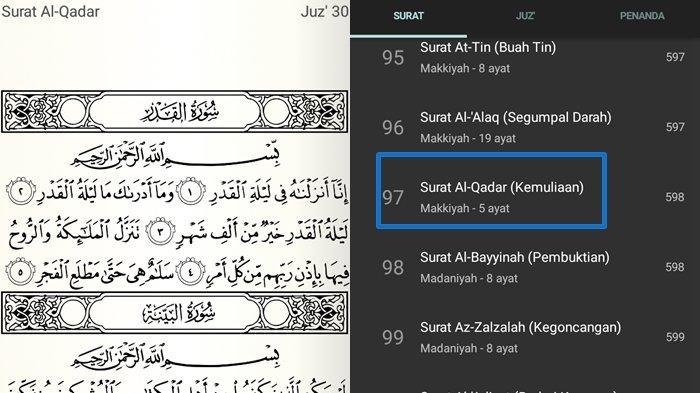 Surat Al-Qadar
Juz' 30
سُورَةُ القَدْرِ
بِسْمِ اللَّهِ الرَّحْمَٰنِ الرَّحِيمِ
إِنَّا أَنزَلْنَاهُ فِي لَيْلَةِ الْقَدْرِ ١ وَمَا أَدْرَاكَ مَا لَيْلَةُ الْقَدْرِ ٢
لَيْلَةُ الْقَدْرِ خَيْرٌ مِّنْ أَلْفِ شَهْرٍ ٣ تَنَزَّلُ الْمَلَائِكَةُ وَالرُّوحُ
فِيهَا بِإِذْنِ رَبِّهِم مِّن كُلِّ أَمْرٍ ٤ سَلَامٌ هِيَ حَتَّىٰ مَطْلَعِ الْفَجْرِ ٥
سُورَةُ البَيِّنَةِ
بِسْمِ اللَّهِ الرَّحْمَٰنِ الرَّحِيمِ
SURAT JUZ' PENANDA
95 Surat At-Tin (Buah Tin) 597
Makkiyah - 8 ayat
96 Surat Al-'Alaq (Segumpal Darah) 597
Makkiyah - 19 ayat
97 Surat Al-Qadar (Kemuliaan) 598
Makkiyah - 5 ayat
98 Surat Al-Bayyinah (Pembuktian) 598
Madaniyah - 8 ayat
99 Surat Az-Zalzalah (Kegoncangan) 599
Madaniyah - 8 ayat